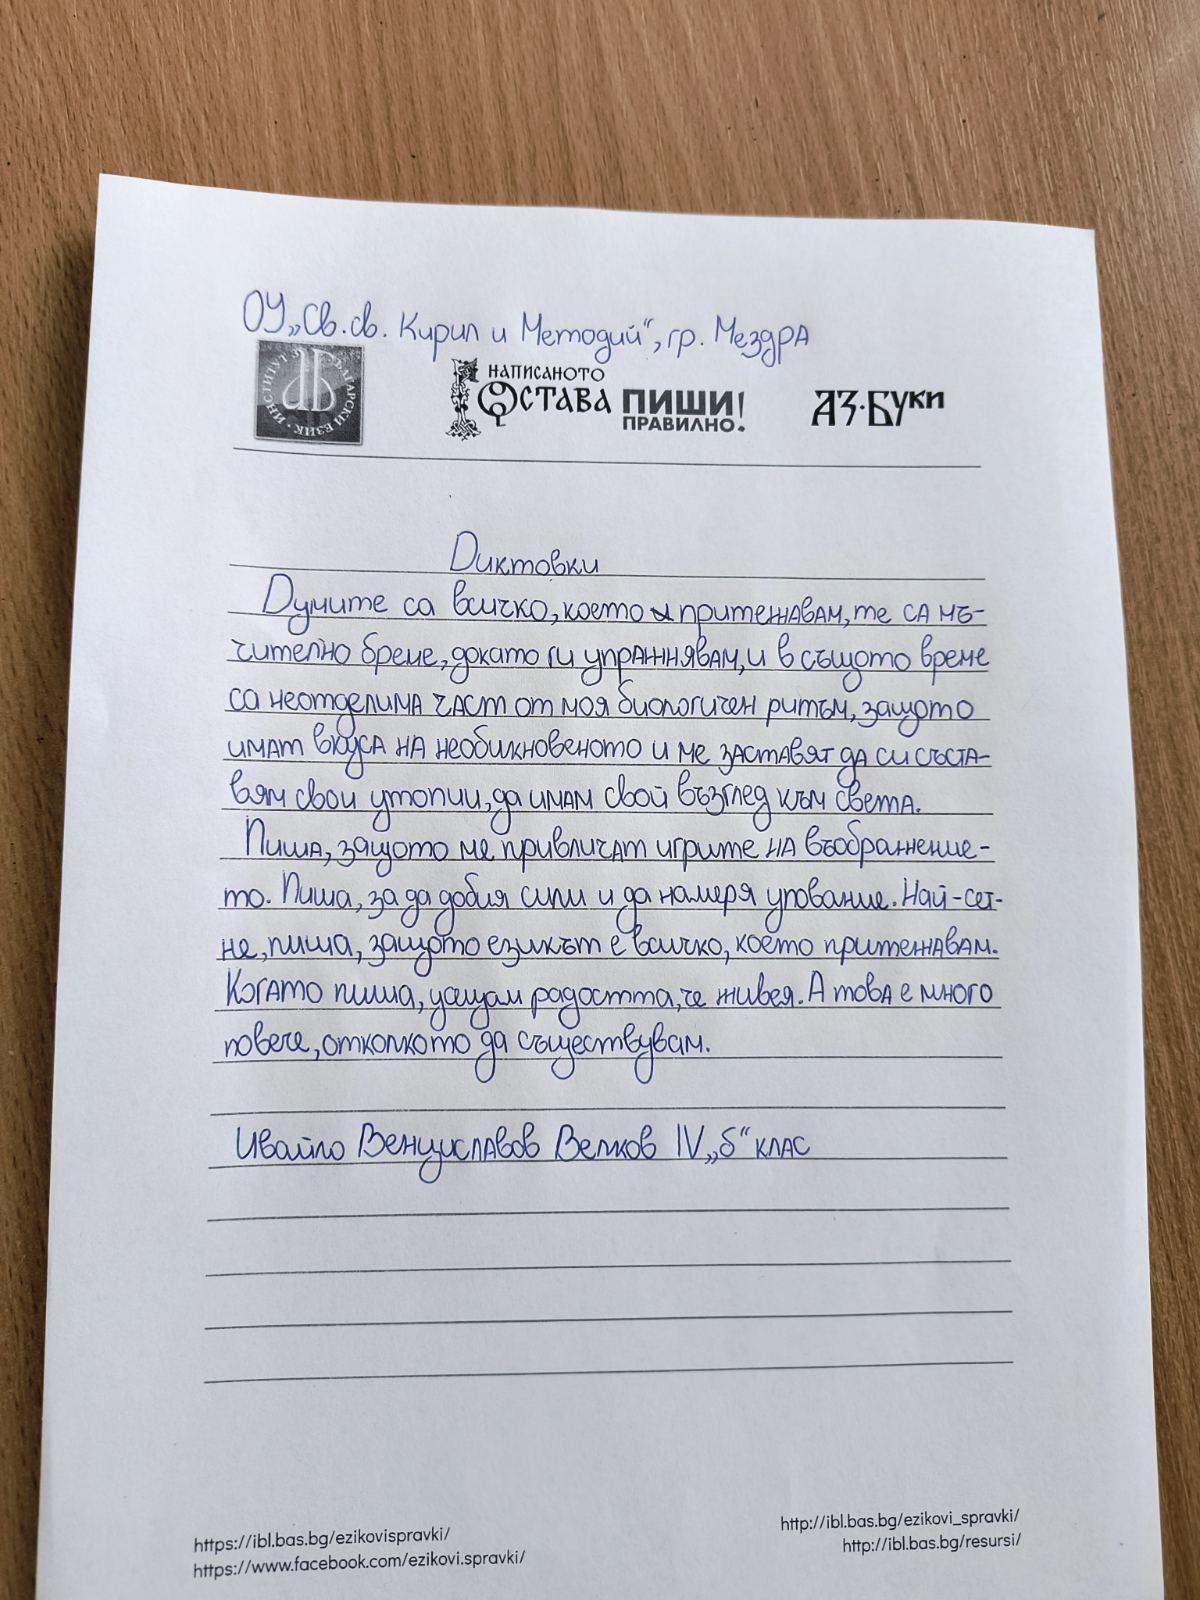 ОУ „Св. св. Кирил и Методий“, гр. Мездра
ИНСТИТУТ ЗА БЪЛГАРСКИ ЕЗИК
НАПИСАНОТО
ОСТАВА ПИШИ
ПРАВИЛНО!
АЗ·БУКИ
Диктовки
Думите са всичко, което притежавам, те са мъ-
чително бреме, докато ги упражнявам, и в същото време
са неотделима част от моя биологичен ритъм, защото
имат вкуса на необикновеното и ме заставят да си съста-
вям свои утопии, да имам свой възглед към света.
Пиша, защото ме привличат игрите на въображение-
то. Пиша, за да добия сили и да намеря упование. Най-сет-
не, пиша, защото езикът е всичко, което притежавам.
Когато пиша, усещам радостта, че живея. А това е много
повече, отколкото да съществувам.
Ивайло Венциславов Велков IV „б“ клас
https://ibl.bas.bg/ezikovispravki/
https://www.facebook.com/ezikovi.spravki/
http://ibl.bas.bg/ezikovi_spravki/
http://ibl.bas.bg/resursi/